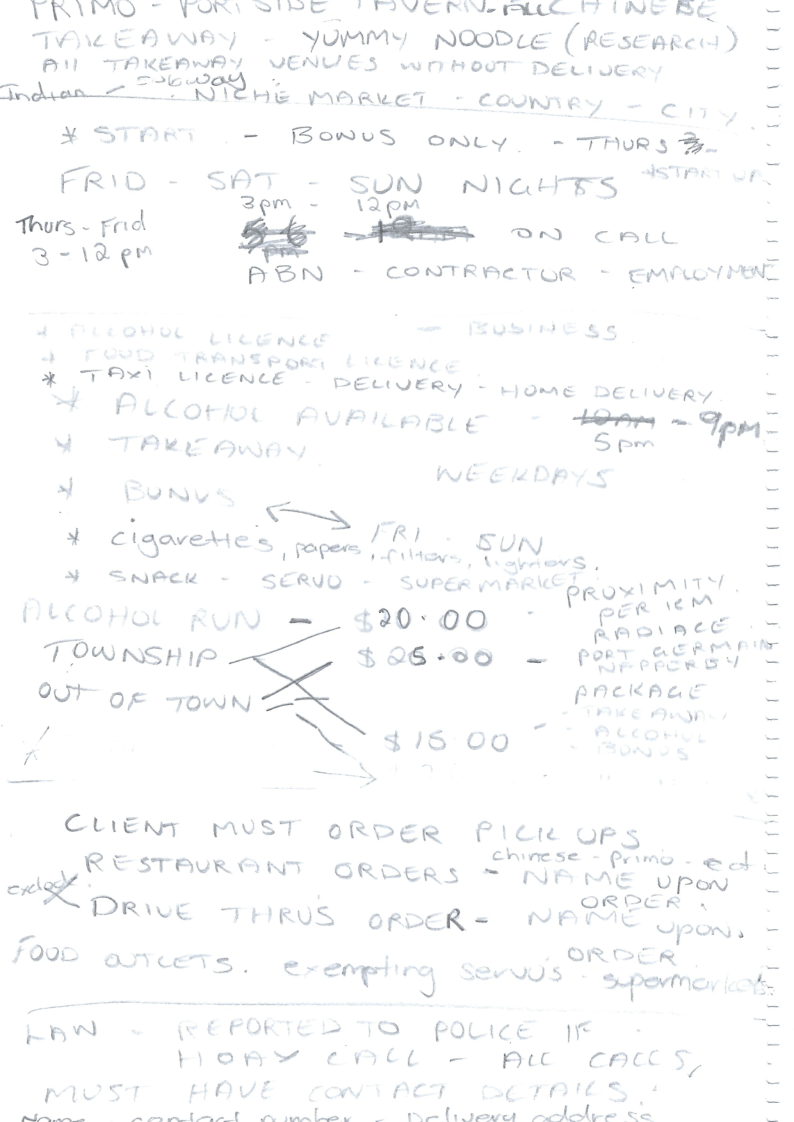 PRIMO - PORTSIDE TAVERN - ALL CHINESE
TAKEAWAY - YUMMY NOODLE (RESEARCH)
All TAKEAWAY VENUES WITHOUT DELIVERY
Subway
Indian - NICHE MARKET - COUNTRY - CITY
* START - BONUS ONLY. - THURS
FRID - SAT - SUN NIGHTS *START UP
Thurs - Frid 3pm - 12pm
3 - 12 pm ON CALL
ABN - CONTRACTUR - EMPLOYMENT
* ALCOHOL LICENCE - BUSINESS
* FOOD TRANSPORT LICENCE
* TAXI LICENCE - DELIVERY - HOME DELIVERY
* ALCOHOL AVAILABLE - 10AM - 9pm
5pm
* TAKEAWAY
WEEKDAYS
* BONUS
FRI - SUN
* cigarette's, papers, filters, lighters.
* SNACK - SERVO - SUPERMARKET
PROXIMITY
ALCOHOL RUN - $20.00 - PER KM
RADIACE
TOWNSHIP $25.00 - PORT GERMAIN
NAPPERBY
OUT OF TOWN PACKAGE
- TAKEAWAY
$15 00 - ALCOHOL
- BONUS
CLIENT MUST ORDER PICK UPS
chinese - Primo - ect
RESTAURANT ORDERS - NAME UPON
ORDER.
DRIVE THRU'S ORDER - NAME upon.
ORDER
FOOD OUTLETS. exempting servo's - supermarkets.
LAW - REPORTED TO POLICE IF
HOAX CALL - ALL CALLS,
MUST HAVE CONTACT DETAILS.
Name - contact number - Delivery address